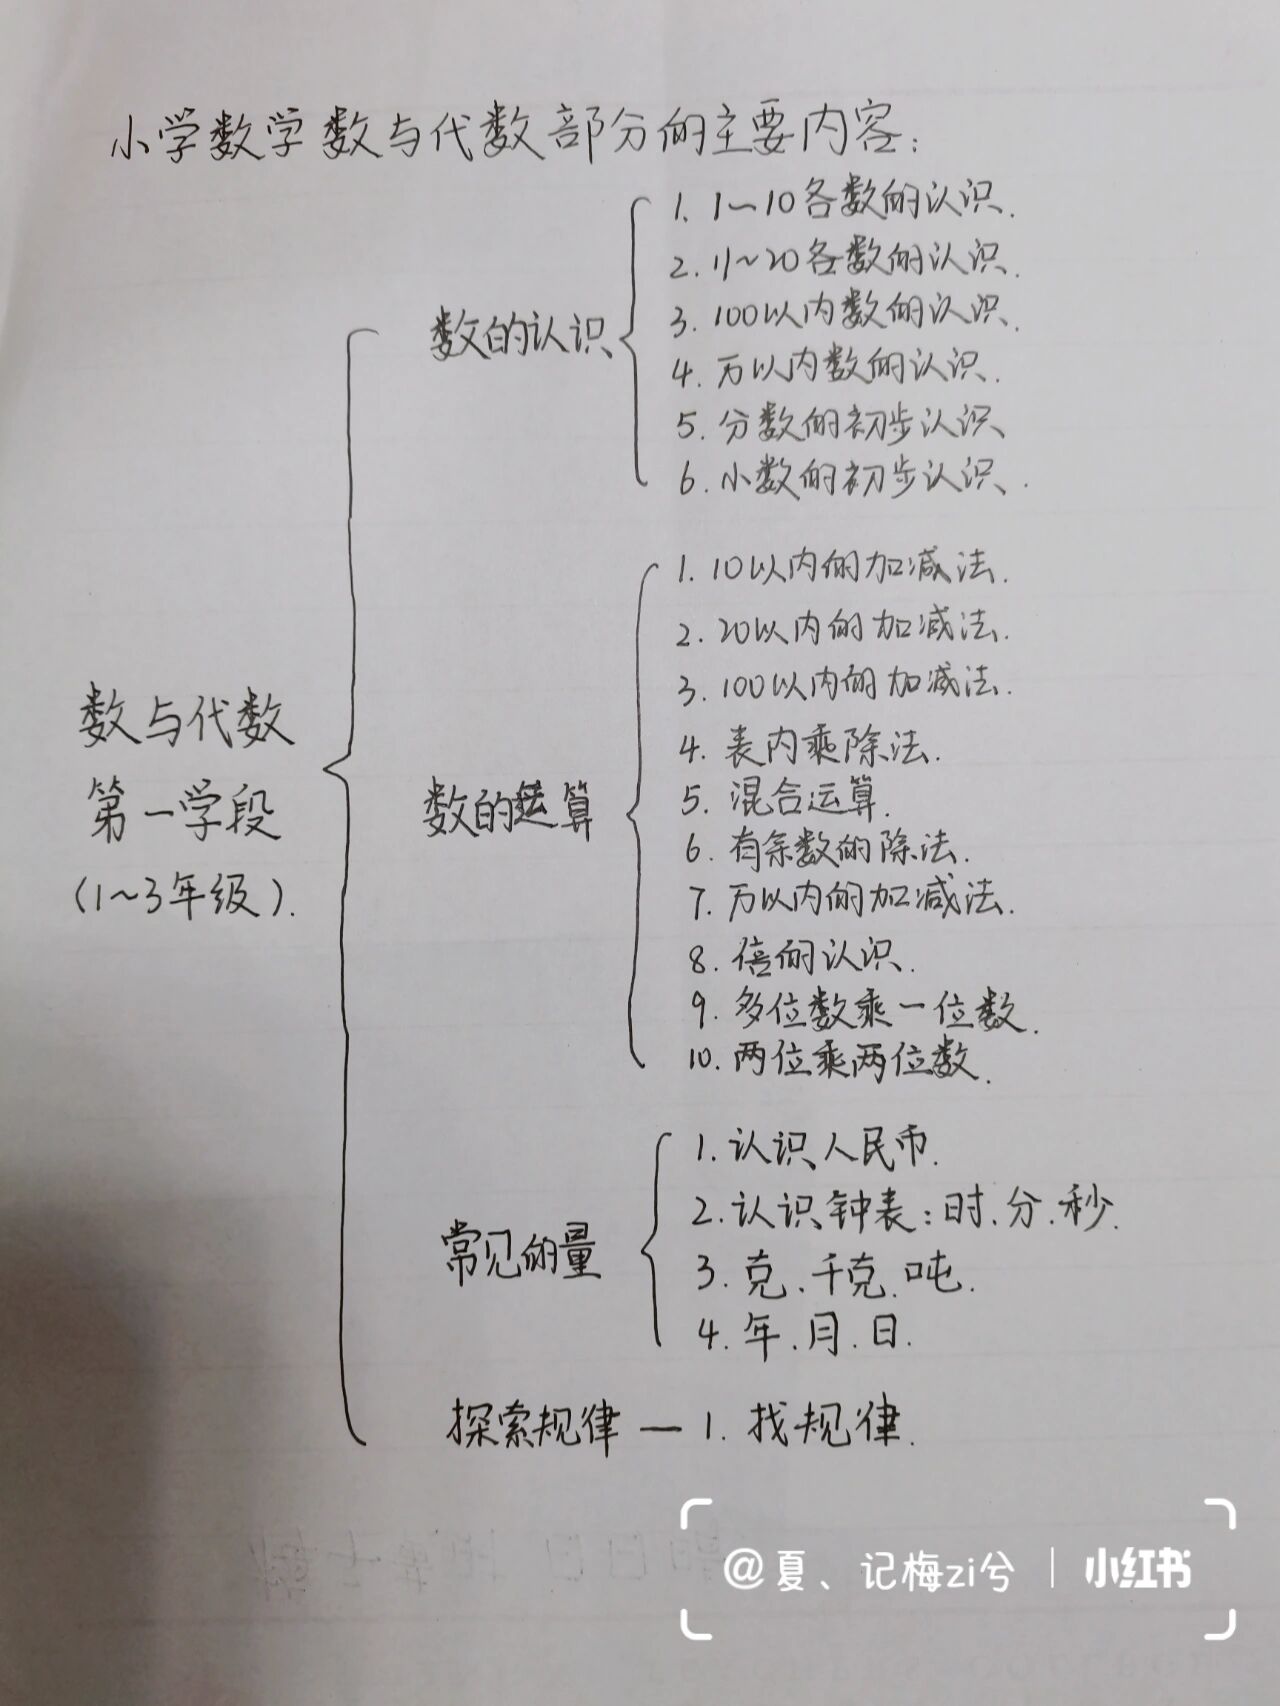 小学数学数与代数部分的主要内容：
数与代数
第一学段
(1~3年级).
数的认识
1. 1~10各数的认识.
2. 11~20各数的认识.
3. 100以内数的认识.
4. 万以内数的认识.
5. 分数的初步认识
6. 小数的初步认识.
数的运算
1. 10以内的加减法.
2. 20以内的加减法.
3. 100以内的加减法.
4. 表内乘除法.
5. 混合运算.
6. 有余数的除法.
7. 万以内的加减法.
8. 倍的认识.
9. 多位数乘一位数.
10. 两位乘两位数.
常见的量
1. 认识人民币.
2. 认识钟表：时.分.秒.
3. 克.千克.吨.
4. 年.月.日.
探索规律 — 1. 找规律.
@夏、记梅zi兮 | 小红书